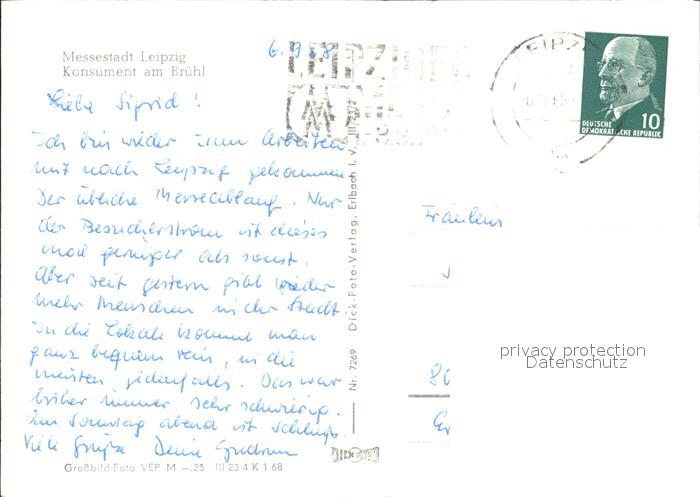 Messestadt Leipzig
Konsument am Brühl
6.9.68
Liebe Sigrid!
Ich bin wieder zum Arbeiten
mit nach Leipzig gekommen.
Der übliche Messeablauf. Nur
der Besucherstrom ist dieses
mal geringer als sonst.
Aber seit gestern gibt wieder
mehr Menschen in der Stadt.
In die Lokale kommt man
ganz bequem rein, in die
meisten jedenfalls. Das war
früher immer sehr schwierig.
Am Sonntag abend ist Schluß.
Viele Grüße Deine Gudrun
Großbild-Foto VEP M –.25 III 23 4 K 1 68
Nr. 7269 Dick-Foto-Verlag, Erlbach i. V. III/23/2
DICK
LEIPZIG
LEIPZIG
MM
DEUTSCHE
DEMOKRATISCHE REPUBLIK
10
Fräulein
privacy protection
Datenschutz
80